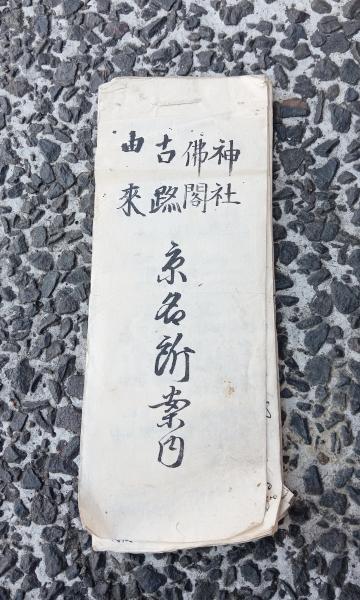 神社
佛閣
古蹟
由来
京名所案内